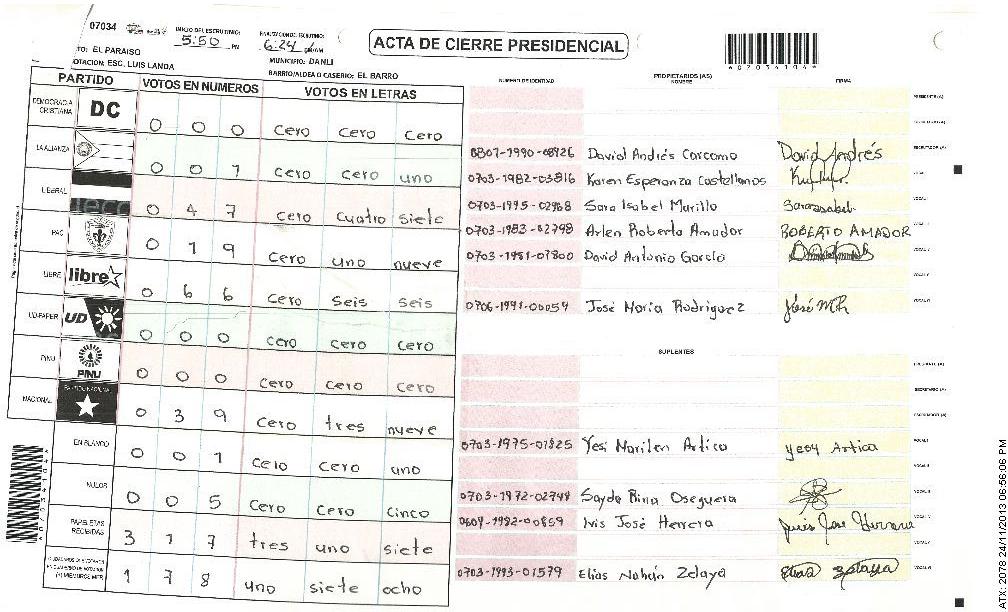 07034
INICIO DEL ESCRUTINIO: 5:50 PM
6:24
ACTA DE CIERRE PRESIDENCIAL
EL PARAISO
MUNICIPIO: DANLI
ESC. LUIS LANDA
BARRIO/ALDEA O CASERIO: EL BARRO
PARTIDO VOTOS EN NUMEROS VOTOS EN LETRAS
DEMOCRACIA CRISTIANA DC 0 0 0 cero cero cero
LA ALIANZA 0 0 1 cero cero uno
LIBERAL 0 4 7 cero cuatro siete
PAC 0 1 9 cero uno nueve
LIBRE libre 0 6 6 cero seis seis
UD-FAPER UD 0 0 0 cero cero cero
PINU PINU 0 0 0 cero cero cero
NACIONAL PARTIDO NACIONAL 0 3 9 cero tres nueve
EN BLANCO 0 0 1 cero cero uno
NULOS 0 0 5 cero cero cinco
PAPELETAS RECIBIDAS 3 1 7 tres uno siete
1 7 8 uno siete ocho
NUMERO DE IDENTIDAD PROPIETARIOS (AS) NOMBRE FIRMA
PRESIDENTE (A)
SECRETARIO (A)
0801-1990-08926 David Andrés Carcamo David Andrés ESCRUTADOR (A)
0703-1982-03816 Karen Esperanza Castellanos VOCAL I
0703-1995-02968 Sara Isabel Murillo Saraisabel
0703-1983-02798 Arlen Roberto Amador ROBERTO AMADOR
0703-1981-01800 David Antonio García
0706-1991-00054 José Maria Rodriguez José M R
SUPLENTES
PRESIDENTE (A)
SECRETARIO (A)
ESCRUTADOR (A)
0703-1975-01825 Yesi Marilen Artica yeey Artica VOCAL I
VOCAL II
0703-1972-02748 Sayda Rina Oseguera VOCAL III
0604-1982-00859 Ivis José Herrera
0703-1993-01579 Elias Nahún Zelaya Elias Zelaya
ATX: 2078 24/11/2013 06:56:06 PM